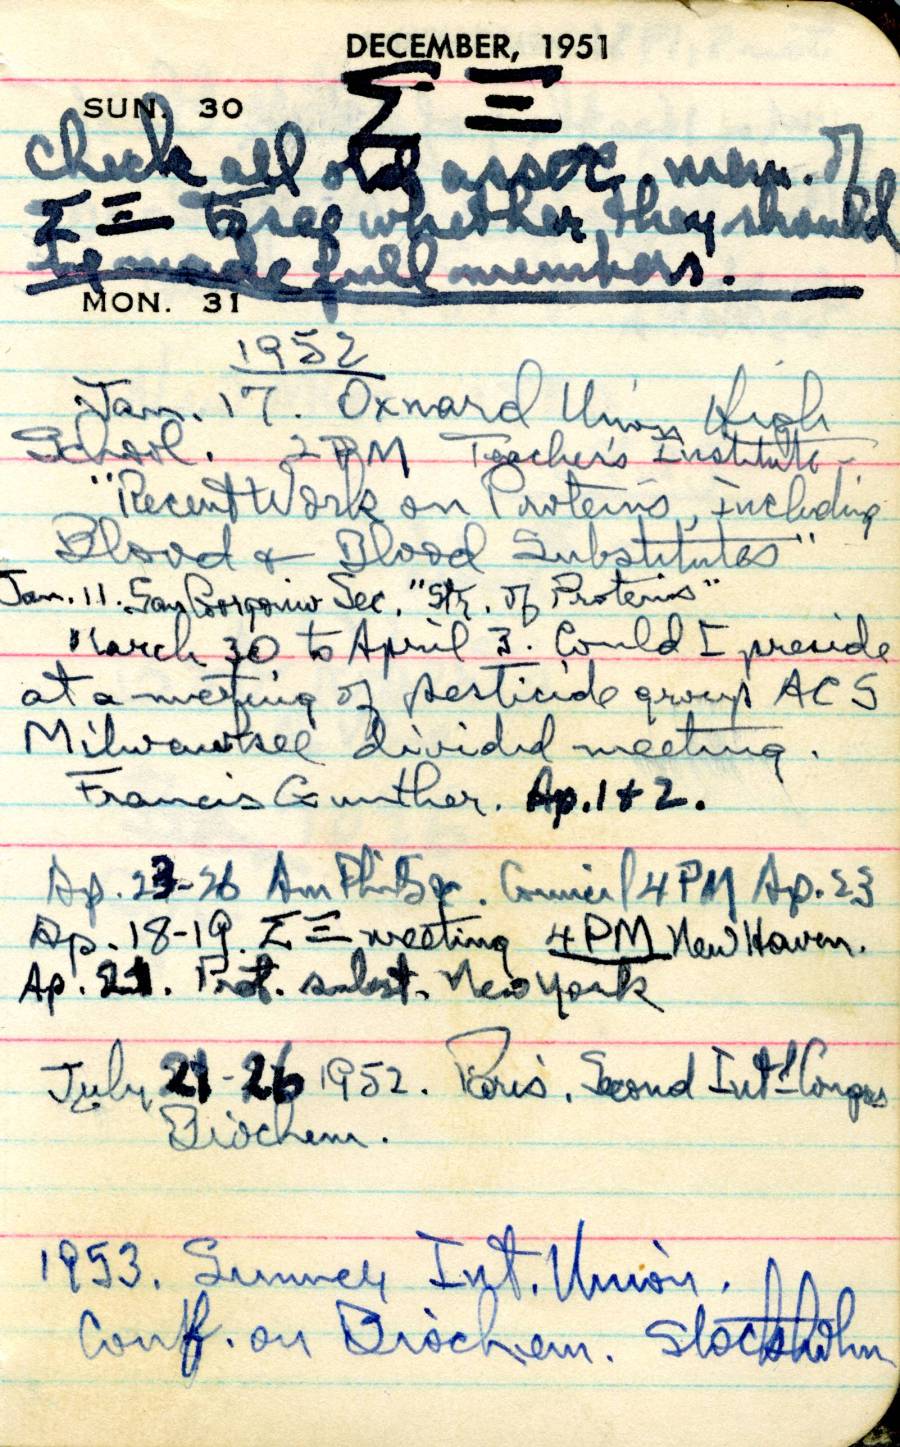 DECEMBER, 1951
Σ Ξ
SUN. 30
Check all old assoc. mem. of
Σ Ξ to see whether they should
be made full members.
MON. 31
1952
Jan. 17. Oxnard Union High
School. 2 PM Teacher's Institute -
"Recent Work on Proteins, including
Blood & Blood Substitutes"
Jan. 11. San Gorgonio Sec. "Str. of Proteins"
March 30 to April 3. Could I preside
at a meeting of pesticide group ACS
Milwaukee divided meeting.
Francis Gunther. Ap. 1 & 2.
Ap. 23-26 Am Phil Soc. Council 4 PM Ap. 23
Ap. 18-19. Σ Ξ meeting 4 PM New Haven.
Ap. 21. Prot. subst. New York
July 21-26 1952. Paris. Second Int'l Congress
Biochem.
1953. Summer Int. Union.
Conf. on Biochem. Stockholm